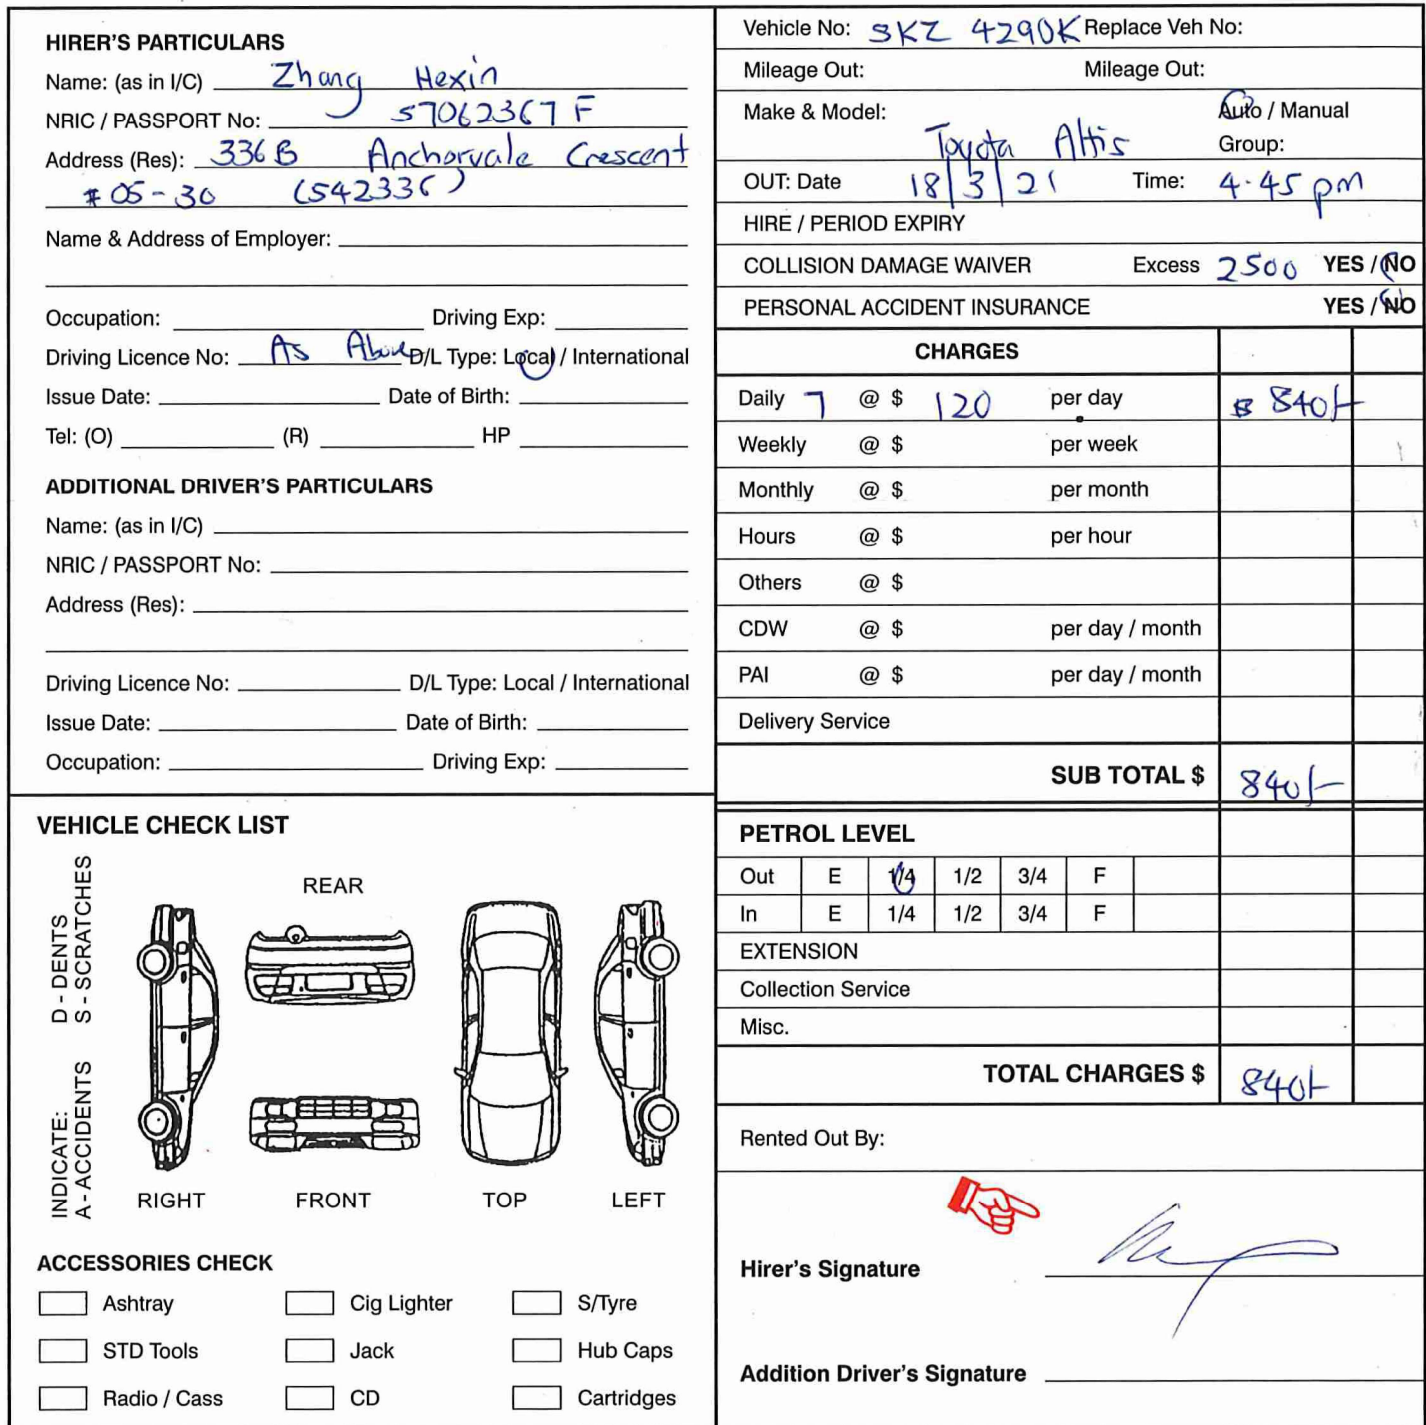 HIRER'S PARTICULARS
Name: (as in I/C) Zhang Hexin
NRIC / PASSPORT No: S7062367F
Address (Res): 336B Anchorvale Crescent
#05-30 (542336)
Name & Address of Employer:
Occupation: Driving Exp:
Driving Licence No: As Above D/L Type: Local / International
Issue Date: Date of Birth:
Tel: (O) (R) HP
ADDITIONAL DRIVER'S PARTICULARS
Name: (as in I/C)
NRIC / PASSPORT No:
Address (Res):
Driving Licence No: D/L Type: Local / International
Issue Date: Date of Birth:
Occupation: Driving Exp:
VEHICLE CHECK LIST
INDICATE: D - DENTS
A - ACCIDENTS S - SCRATCHES
REAR
RIGHT FRONT TOP LEFT
ACCESSORIES CHECK
Ashtray Cig Lighter S/Tyre
STD Tools Jack Hub Caps
Radio / Cass CD Cartridges
Vehicle No: SKZ 4290K Replace Veh No:
Mileage Out: Mileage Out:
Make & Model: Auto / Manual
Toyota Altis Group:
OUT: Date 18/3/21 Time: 4.45 pm
HIRE / PERIOD EXPIRY
COLLISION DAMAGE WAIVER Excess 2500 YES / NO
PERSONAL ACCIDENT INSURANCE YES / NO
CHARGES
Daily 7 @ $ 120 per day $ 840/-
Weekly @ $ per week
Monthly @ $ per month
Hours @ $ per hour
Others @ $
CDW @ $ per day / month
PAI @ $ per day / month
Delivery Service
SUB TOTAL $ 840/-
PETROL LEVEL
Out E 1/4 1/2 3/4 F
In E 1/4 1/2 3/4 F
EXTENSION
Collection Service
Misc.
TOTAL CHARGES $ 840/-
Rented Out By:
Hirer's Signature
Addition Driver's Signature